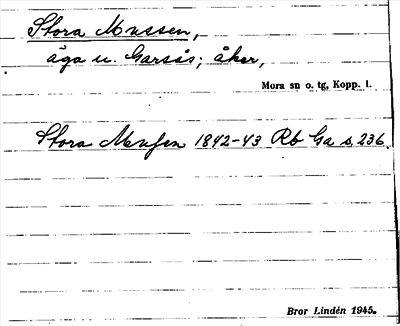 Stora Mussen,
äga u. Garsås; åker,
Mora sn o. tg, Kopp. l.
Stora Mussen 1842-43 Rb Ga s. 236.
Bror Lindén 1945.